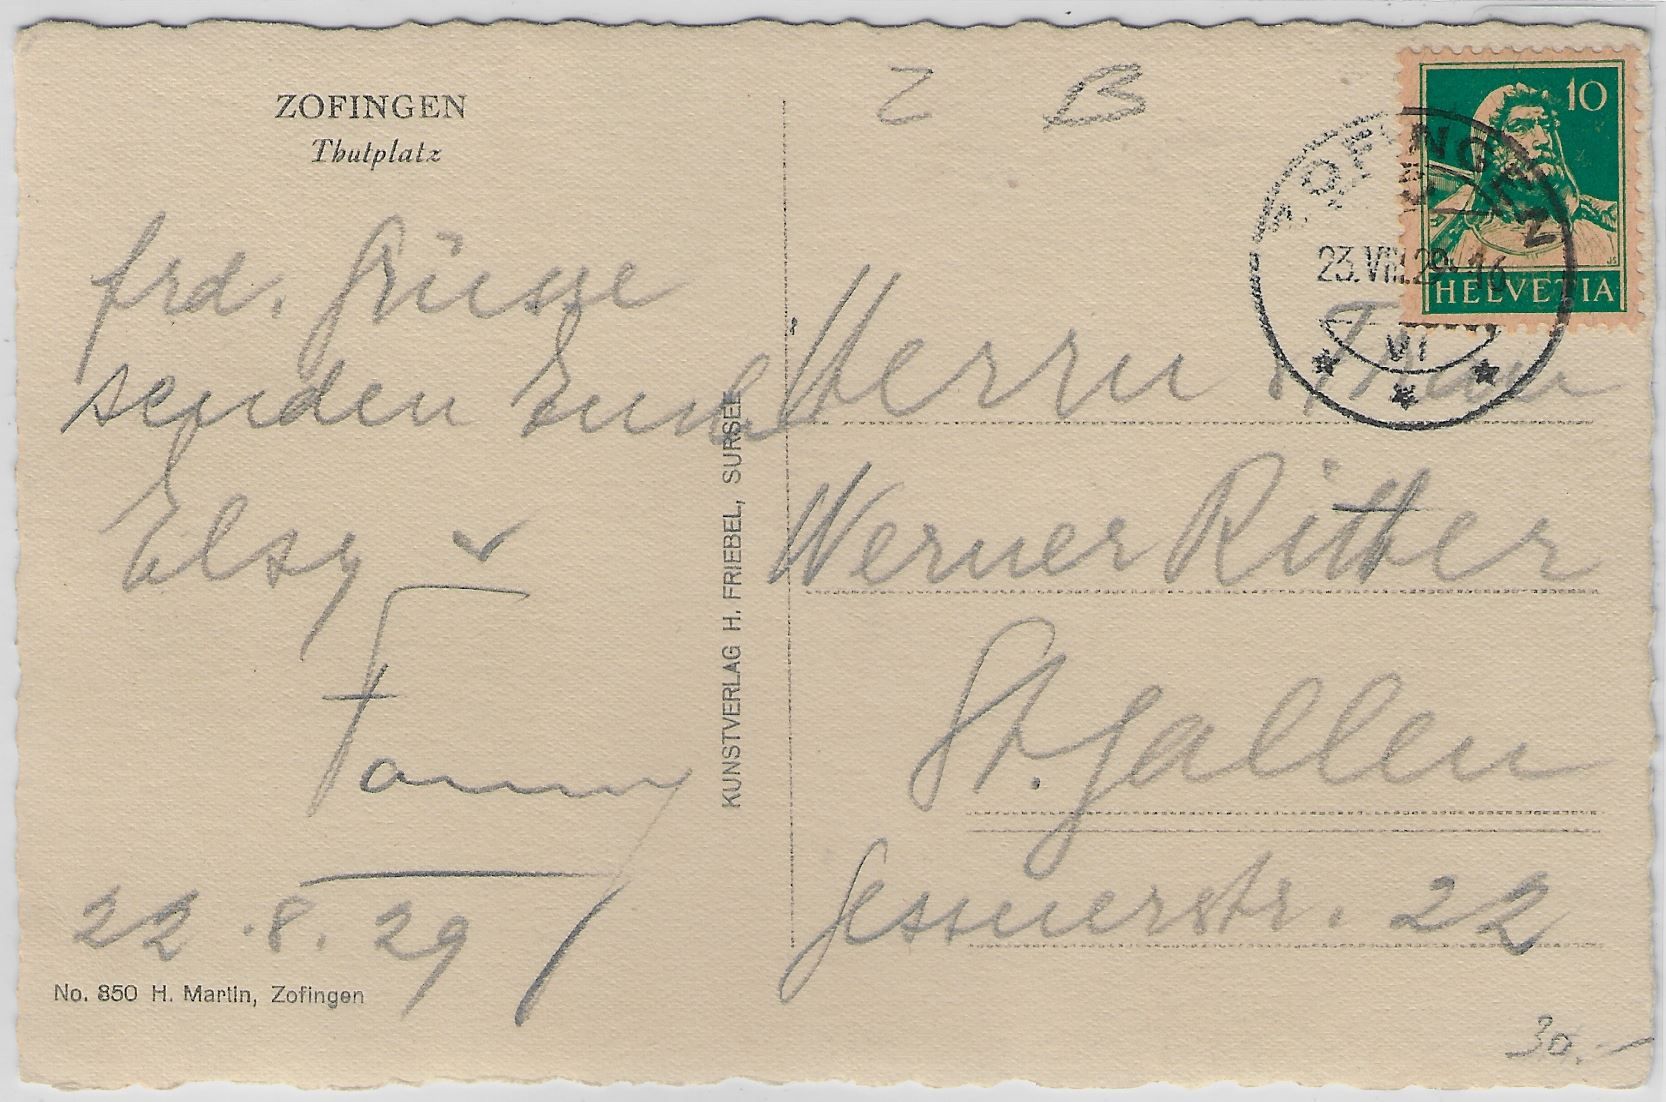 ZOFINGEN
Thutplatz
frd. Grüsse
senden Euch
Elsy
Fanny
22.8.29
No. 850 H. Martin, Zofingen
KUNSTVERLAG H. FRIEBEL, SURSEE
Z B
10
HELVETIA
ZOFINGEN
23.VIII.29. 16
VI
Herrn
Werner Ritter
St. Gallen
Gessnerstr. 22
30.—